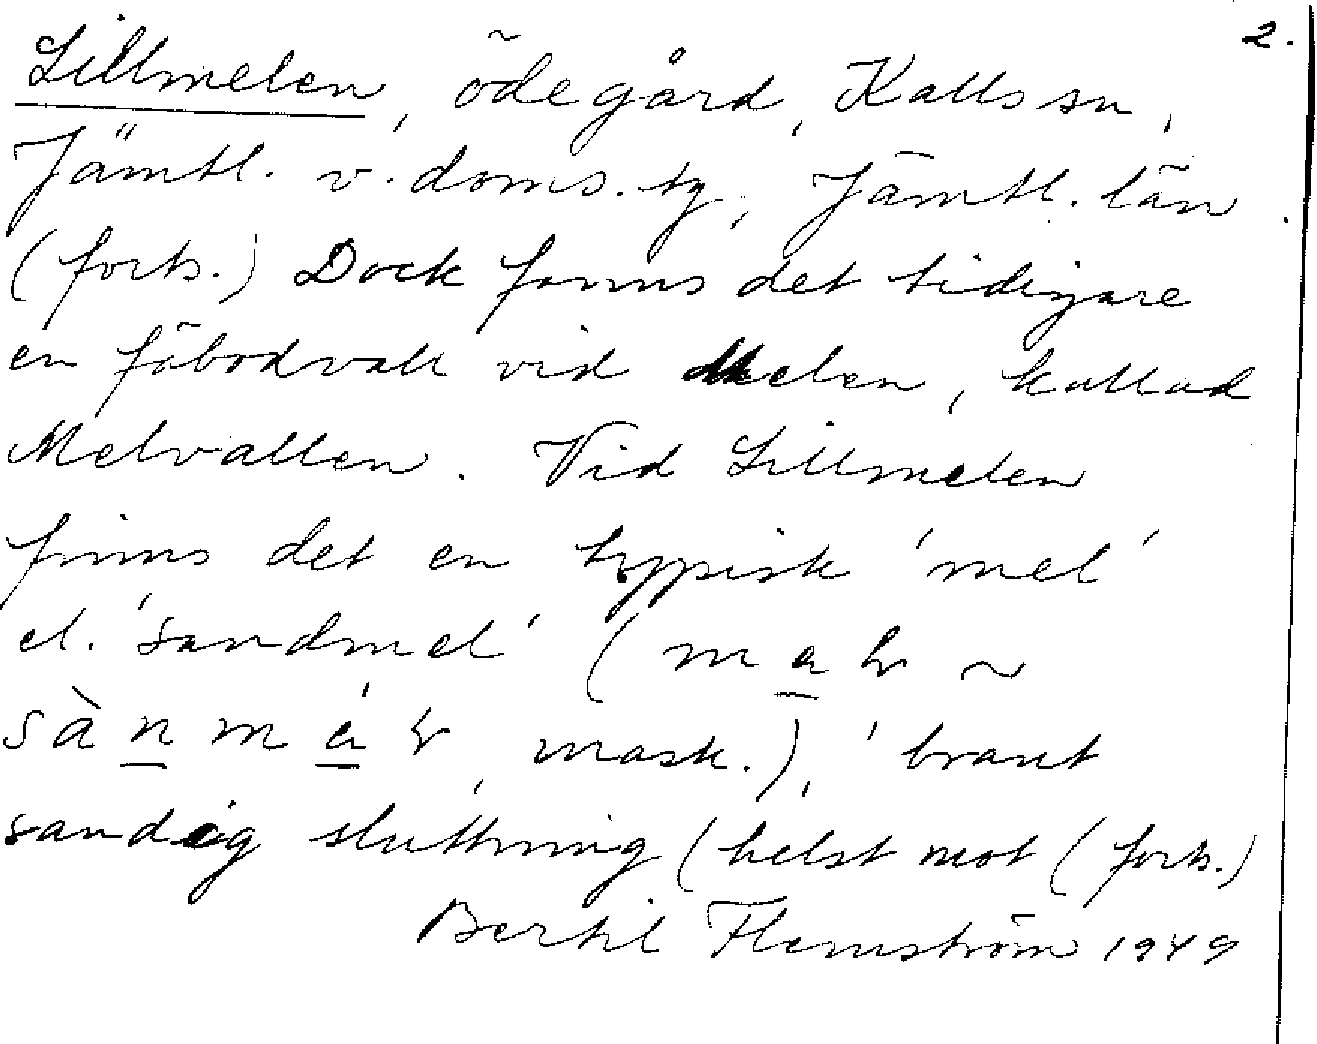 2.
Lillmelen, ödegård, Kalls sn,
Jämtl. v. doms. tg, Jämtl. län.
(forts.) Dock fanns det tidigare
en fäbodvall vid Melen, kallad
Melvallen. Vid Lillmelen
finns det en typisk 'mel'
el. 'sandmel' (
mask.), 'brant
sandig sluttning (helst mot (forts.)
Bertil Flemström 1949